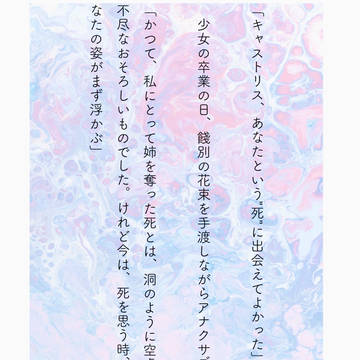 「キャストリス、あなたという〝死〟に出会えてよかった」
少女の卒業の日、餞別の花束を手渡しながらアナクサゴ
「かつて、私にとって姉を奪った死とは、洞のように空
不尽なおそろしいものでした。けれど今は、死を思う時、
なたの姿がまず浮かぶ」